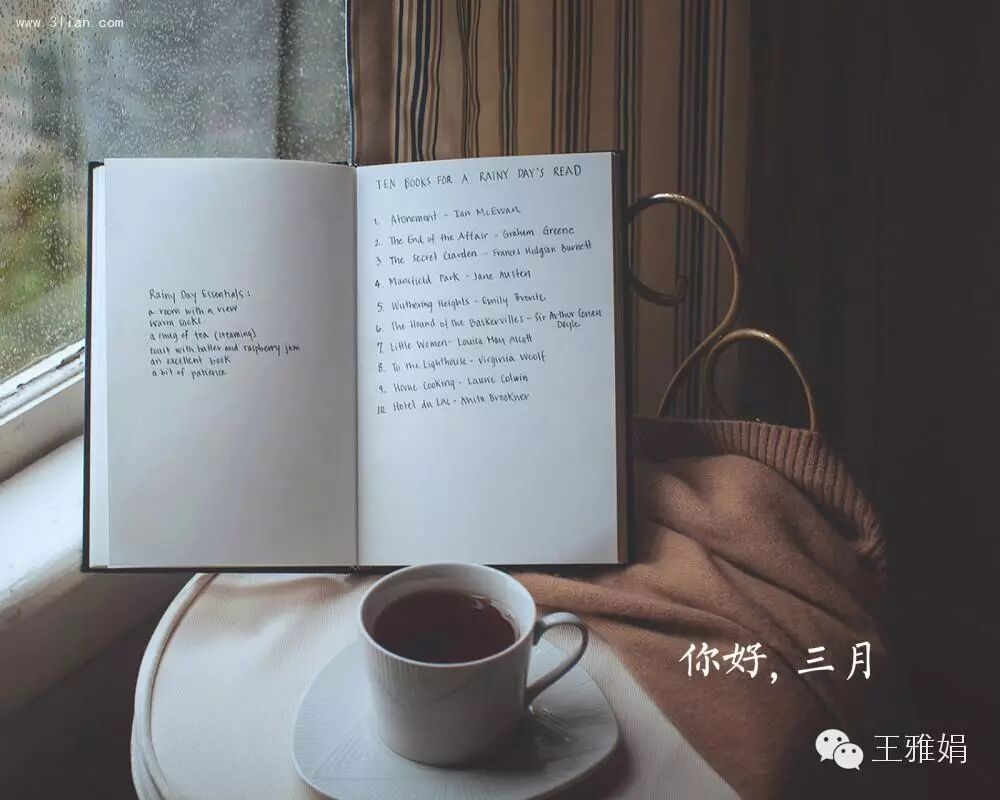 www.3lian.com
Rainy Day Essentials:
a room with a view
warm socks
a mug of tea (steaming)
toast with butter and raspberry jam
an excellent book
a bit of patience
TEN BOOKS FOR A RAINY DAY'S READ
1. Atonement - Ian McEwan
2. The End of the Affair - Graham Greene
3 The Secret Garden - Frances Hodgson Burnett
4. Mansfield Park - Jane Austen
5. Wuthering Heights - Emily Bronte
6. The Hound of the Baskervilles - Sir Arthur Conan
Doyle
7. Little Women - Louisa May Alcott
8. To the Lighthouse - Virginia Woolf
9. Home Cooking - Laurie Colwin
10. Hotel du Lac - Anita Brookner
你好，三月
王雅娟